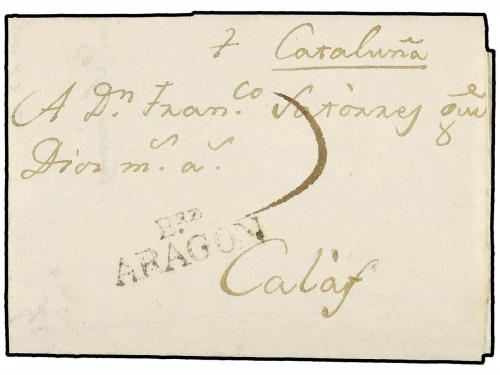 + Cataluña
A Dn Franco Satorres que
Dios ms as
BRZ
ARAGON
Calàf